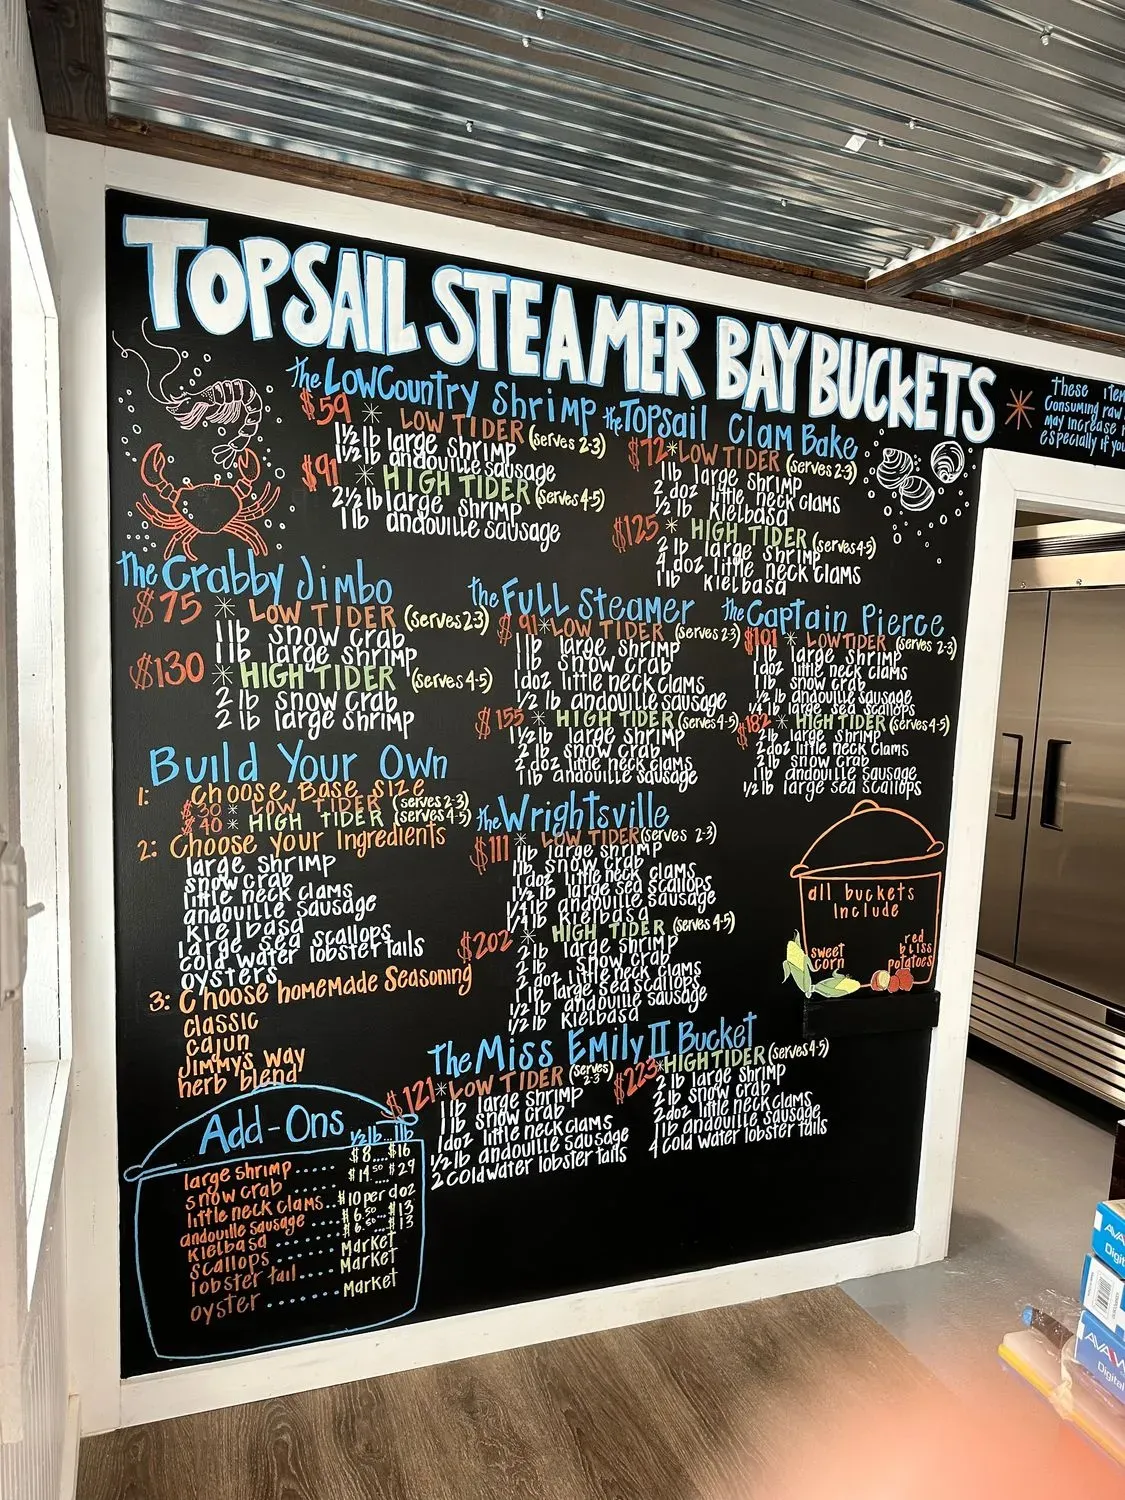 TOPSAIL STEAMER BAY BUCKETS
these
Consuming raw
may increase
especially if you
the LowCountry Shrimp
$59 * LOW TIDER (serves 2-3)
1½ lb large shrimp
1½ lb andouille sausage
$91 * HIGH TIDER (serves 4-5)
2½ lb large shrimp
1 lb andouille sausage
the Topsail Clam Bake
$72 * LOW TIDER (serves 2-3)
1lb large shrimp
2 doz little neck clams
½ lb Kielbasa
$125 * HIGH TIDER (serves 4-5)
2 lb large shrimp
4 doz little neck clams
1 lb Kielbasa
the Crabby Jimbo
$75 * LOW TIDER (serves 2-3)
1 lb snow crab
1 lb large shrimp
$130 * HIGH TIDER (serves 4-5)
2 lb snow crab
2 lb large shrimp
the Full Steamer
$91 * LOW TIDER (serves 2-3)
1lb large shrimp
1lb snow crab
1doz little neck clams
½ lb andouille sausage
$155 * HIGH TIDER (serves 4-5)
1½ lb large shrimp
2 lb snow crab
2 doz little neck clams
1 lb andouille sausage
the Captain Pierce
$101 * LOW TIDER (serves 2-3)
1lb large shrimp
1doz little neck clams
1 lb snow crab
½ lb andouille sausage
¼ lb large sea scallops
$182 * HIGH TIDER (serves 4-5)
2lb large shrimp
2doz little neck clams
2lb snow crab
1lb andouille sausage
½ lb large sea scallops
Build Your Own
1: Choose Base Size
$30 * LOW TIDER (serves 2-3)
$40 * HIGH TIDER (serves 4-5)
2: Choose your Ingredients
large shrimp
snow crab
little neck clams
andouille sausage
Kielbasa
large sea scallops
cold water lobster tails
oysters
3: Choose homemade Seasoning
classic
cajun
Jimmy's Way
herb blend
the Wrightsville
$111 * LOW TIDER (serves 2-3)
1lb large shrimp
1lb snow crab
1doz little neck clams
½ lb large sea scallops
½ lb andouille sausage
¼ lb Kielbasa
$202 * HIGH TIDER (serves 4-5)
2lb large shrimp
2lb snow crab
2 doz little neck clams
1 lb large sea scallops
½ lb andouille sausage
½ lb Kielbasa
all buckets
Include
sweet
corn
red
bliss
potatoes
the Miss Emily II Bucket
$121 * LOW TIDER (serves 2-3)
1 lb large shrimp
1 lb snow crab
1doz little neck clams
½ lb andouille sausage
2 cold water lobster tails
$223 * HIGH TIDER (serves 4-5)
2 lb large shrimp
2 lb snow crab
2doz little neck clams
1 lb andouille sausage
4 cold water lobster tails
Add-Ons ½ lb...1lb
large shrimp ..... $8....$16
snow crab ..... $14.50....$29
little neck clams..$10 per doz
andouille sausage ... $6.50...$13
Kielbasa ..... $6.50...$13
scallops ...... Market
lobster tail..... Market
oyster ....... Market
AVA
Digit
AVA
Digital